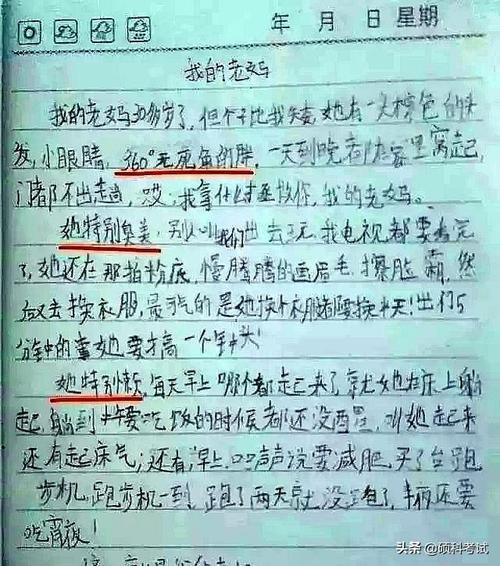 年 月 日 星期
我的老妈
我的老妈30多岁了，但个子比我矮，她有一头棕色的头
发，小眼睛，360°无死角的胖，一天到晚都在家里窝起，
门都不出走，哎，我拿什么拯救你，我的老妈。
她特别臭美，别人叫我们出去玩，我电视都要看完
了，她还在那拍粉底，慢腾腾的画眉毛，擦脸霜，然
后又去换衣服，最气的是她换个衣服都要换半天！出门5
分钟的事她要搞一个钟头！
她特别懒，每天早上哪个都起来了，就她在床上躺
起，躺到中午要吃饭的时候都还没酉星，叫她起来
还有起床气；还有，早上口口声声说要减肥，买了台跑
步机，跑步机一到，跑了两天就没跑了，半夜还要
吃宵夜！
头条 @硕科考试